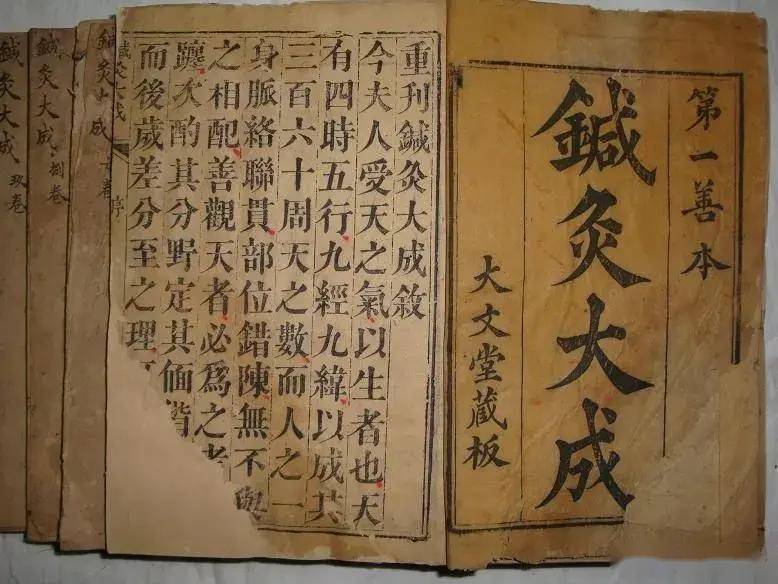 第一善本
鍼灸大成
大文堂藏板
重刊鍼灸大成敘
今夫人受天之氣以生者也天
有四時五行九經九緯以成其
三百六十周天之數而人之一
身脈絡聯貫部位錯陳無不與
之相配善觀天者必為之考
躔次酌其分野定其偭
而後歲差分至之理
鍼灸大成
序
鍼灸大成
卷
鍼灸大成
捌卷
鍼灸大成
玖卷